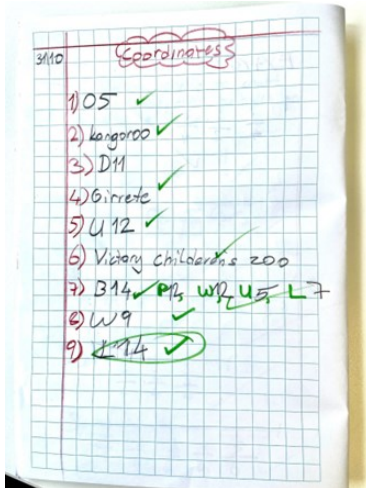 31/10 Coordinates
1) O5
2) kangoroo
3) D11
4) Girrete
5) U 12
6) Victory childeren's zoo
7) B14, P12, W12, U5, L7
8) W9
9) L14